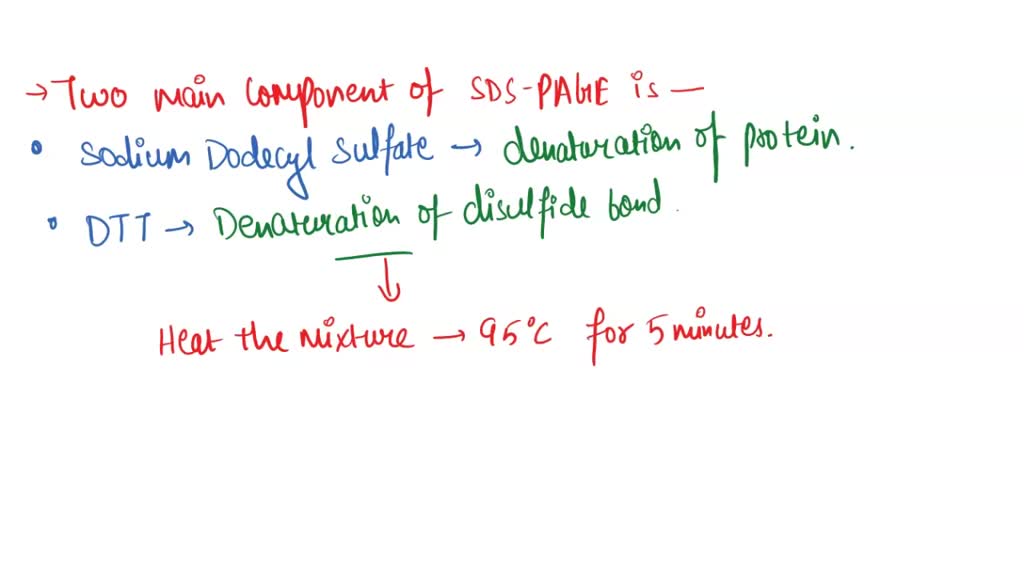 → Two main component of SDS-PAGE is —
• Sodium Dodecyl Sulfate → denaturation of protein.
• DTT → Denaturation of disulfide bond.
↓
Heat the mixture → 95°C for 5 minutes.